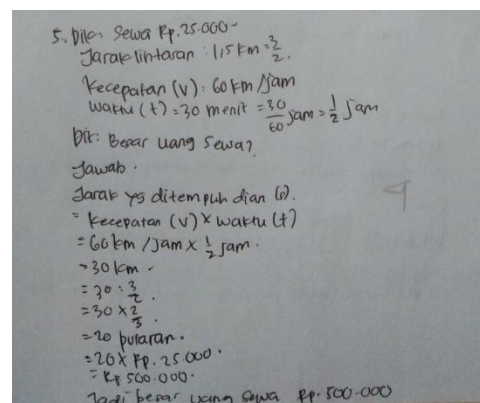 5. Dik: Sewa Rp. 25.000-
Jarak lintaran : 1,5 km = 3/2.
Kecepatan (v) : 60 km /jam
Waktu (t) = 30 menit = 30/60 jam = 1/2 jam
Dit: Besar uang sewa?
Jawab.
Jarak yg ditempuh dian (s).
= Kecepatan (v) x waktu (t)
= 60 km /jam x 1/2 jam.
= 30 km.
= 30 : 3/2.
= 30 x 2/3.
= 20 putaran.
= 20 x Rp. 25.000.
= Rp 500.000.
Jadi besar uang sewa Rp. 500.000